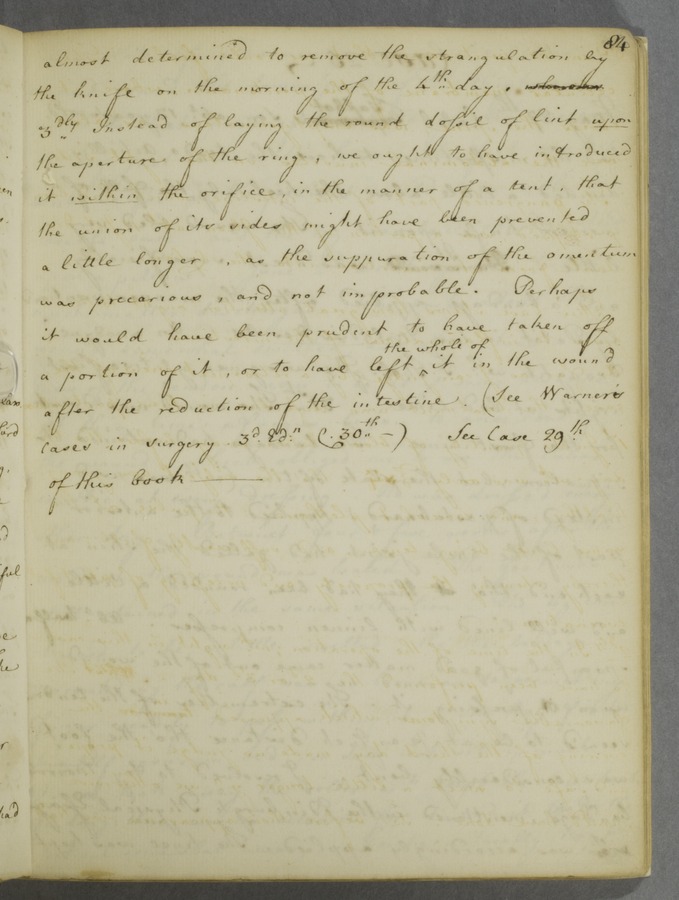 84
almost determin'd to remove the strangulation by
the knife on the morning of the 4th day.
3dly Instead of laying the round dossil of lint upon
the aperture of the ring, we ought to have introduced
it within the orifice, in the manner of a tent, that
the union of its sides might have been prevented
a little longer, as the suppuration of the omentum
was precarious, and not improbable. Perhaps
it would have been prudent to have taken off
the whole of
a portion of it, or to have left ‸ it in the wound
after the reduction of the intestine. (See Warner's
Cases in surgery. 3d. Edn. C. 30th —) See Case 29th
of this book ———